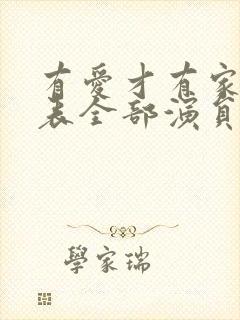 有愛才有家
表全部演員
學家瑞